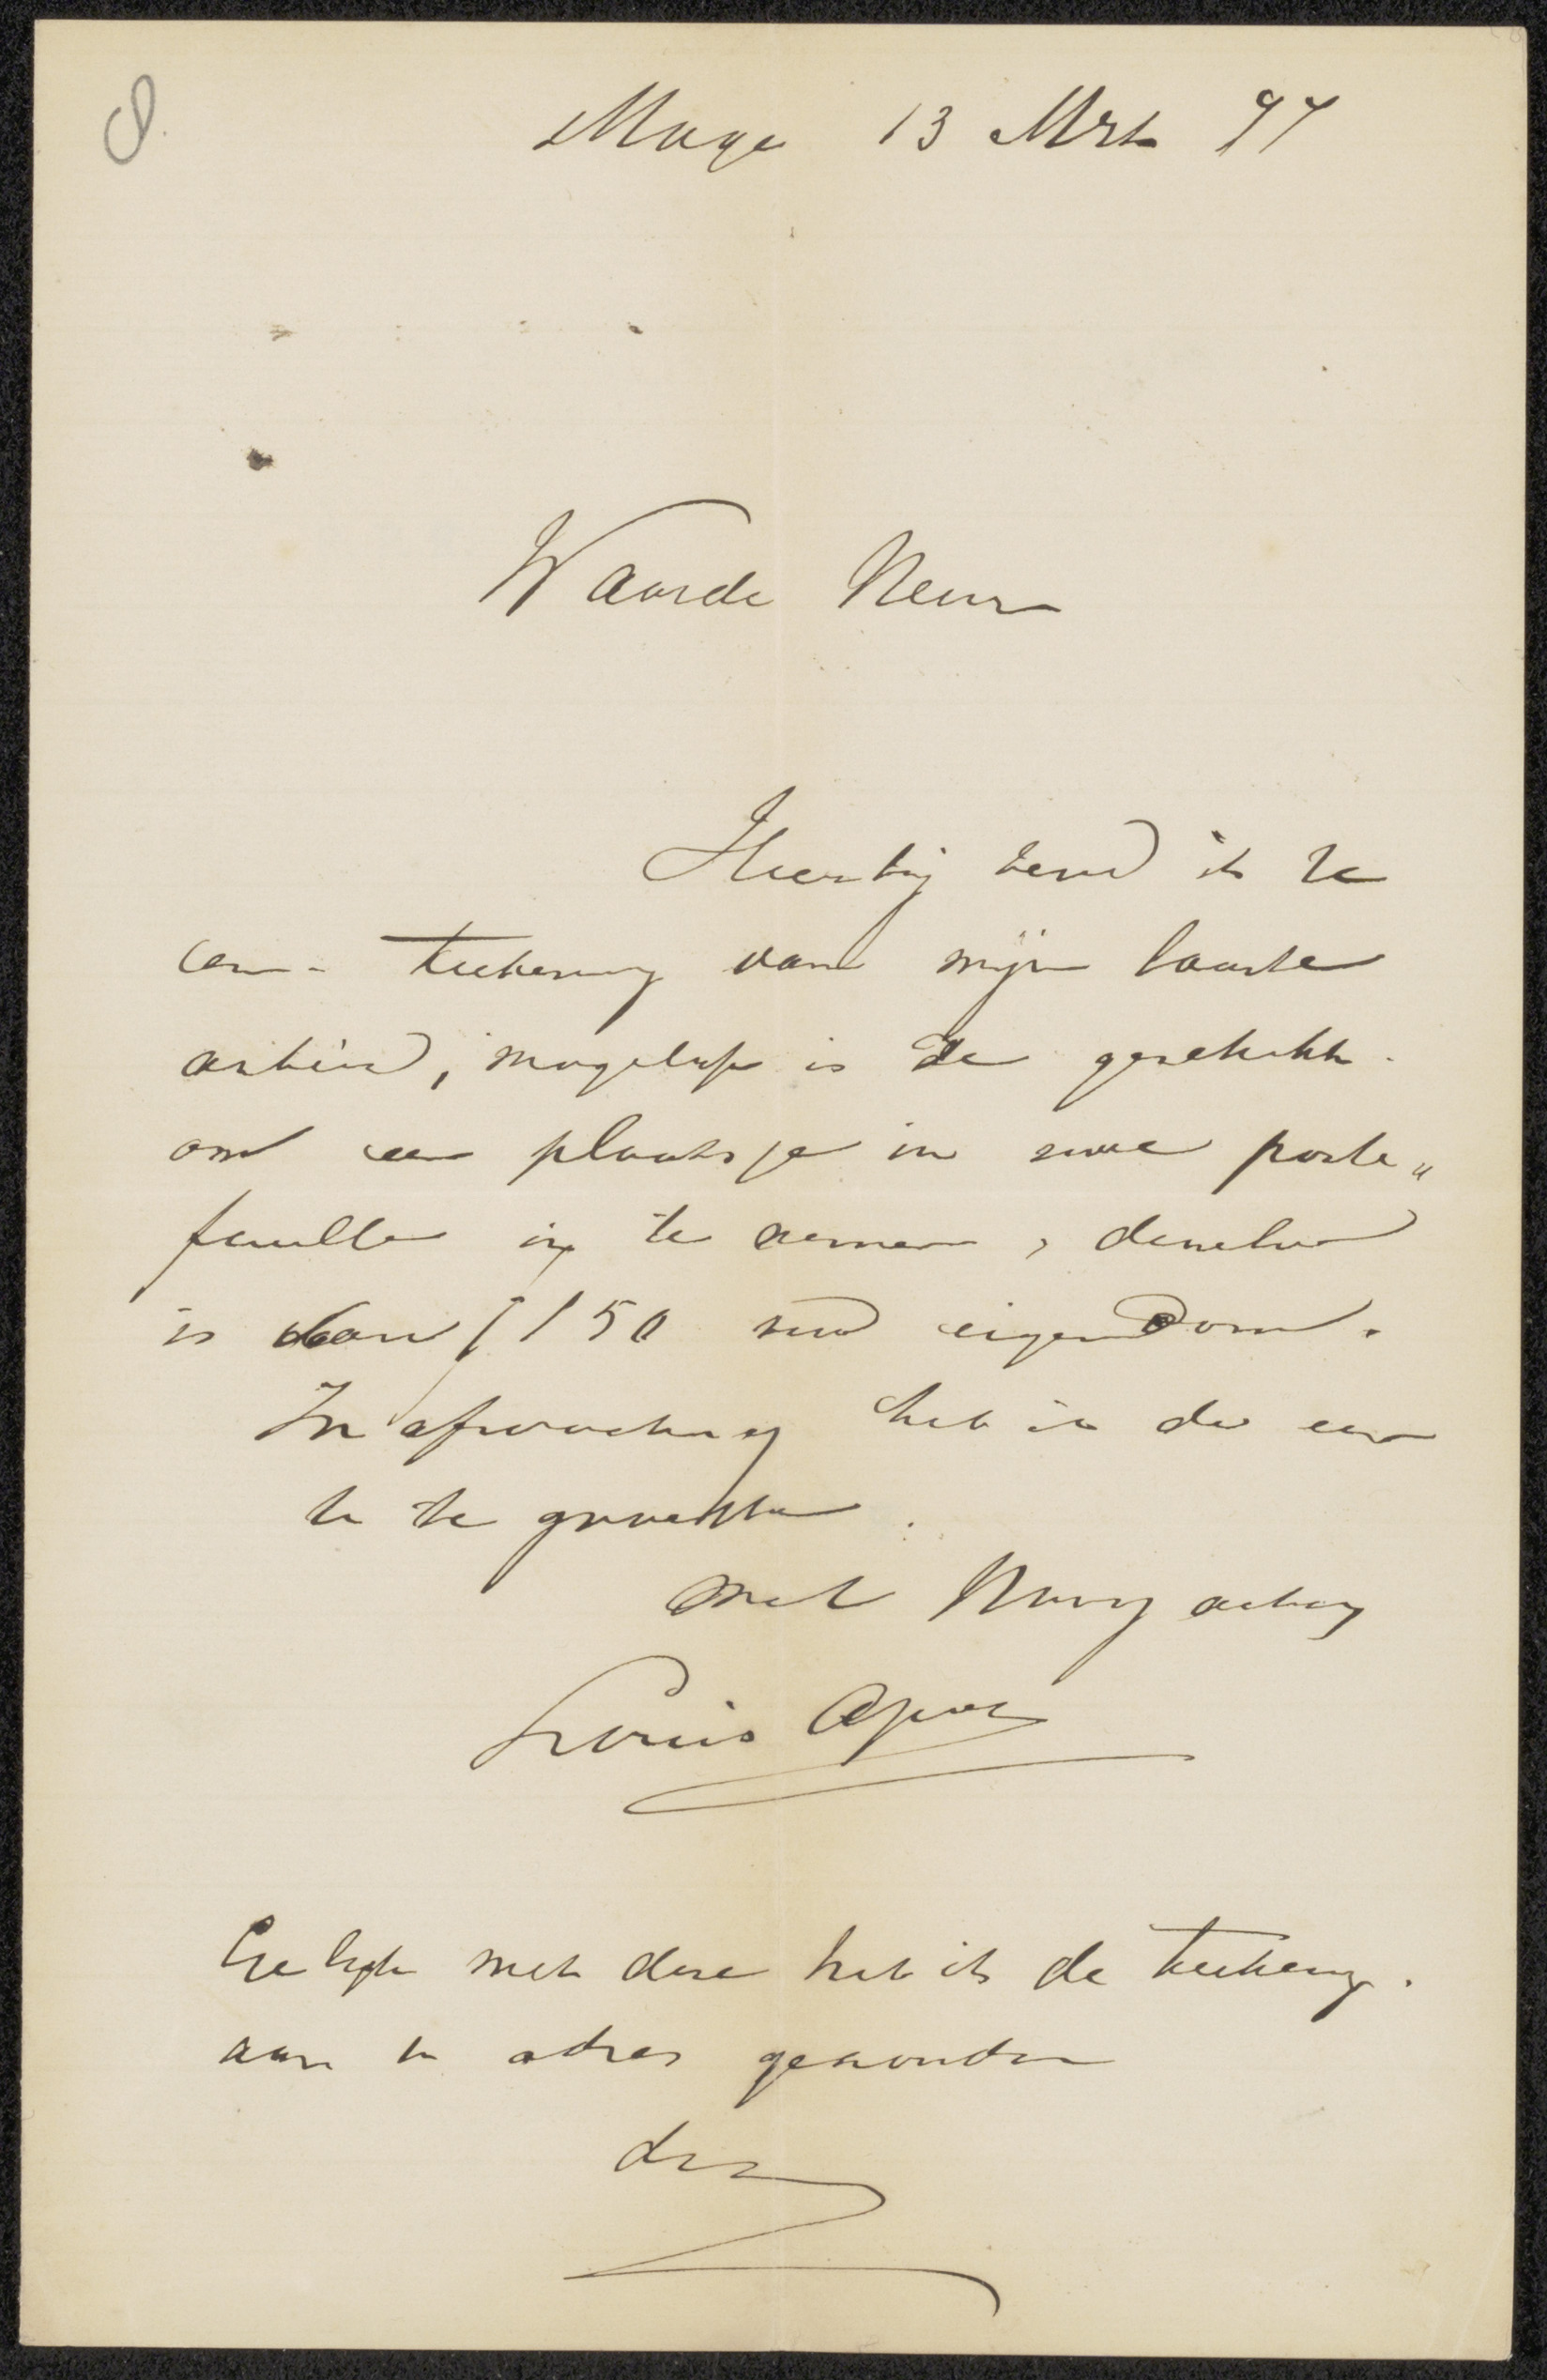 8.
Hage 13 Mrt 97
Waarde Heer
Hierbij zend ik U
een teekening van mijn laatste
arbeid, mogelijk is ze geschikt
om een plaatsje in uwe porte„
feuille in te nemen, dezelve
is dan f 150 uw eigendom.
In afwachting heb ik de eer
U te groeten.
met Hoogachting
Louis Apol
Gelijk met deze heb ik de teekening.
aan uw adres gezonden